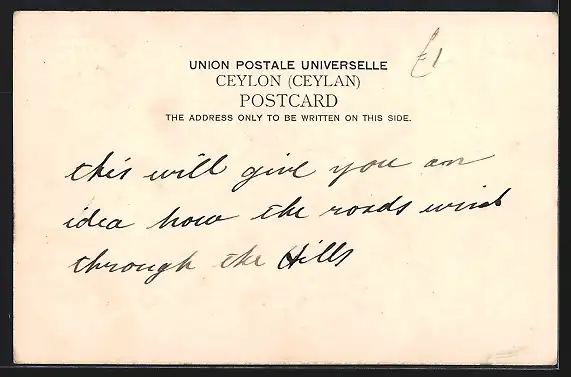 £1
UNION POSTALE UNIVERSELLE
CEYLON (CEYLAN)
POSTCARD
THE ADDRESS ONLY TO BE WRITTEN ON THIS SIDE.
this will give you an
idea how the roads wind
through the Hills